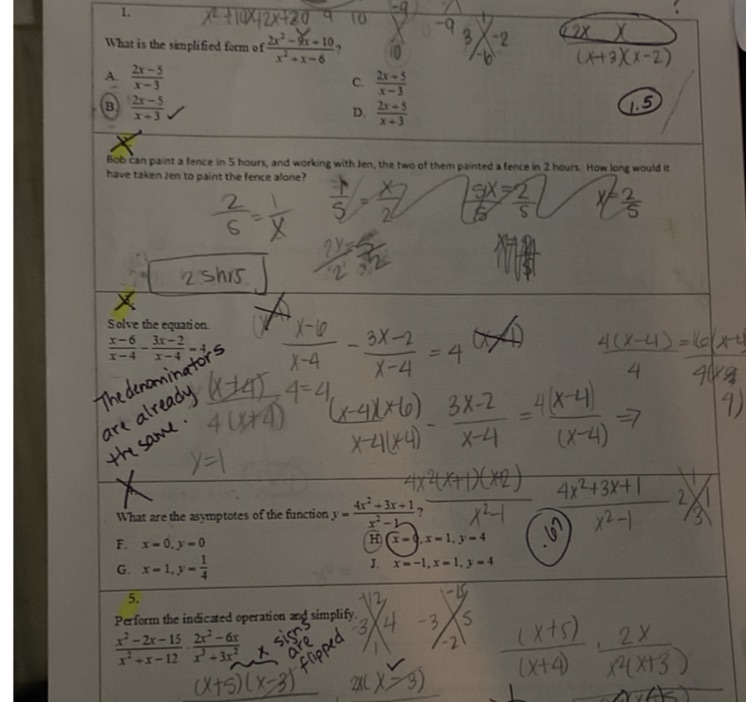 1.
What is the simplified form of (2x² - 9x + 10)/(x² + x - 6)?
A. (2x - 5)/(x - 3)
B. (2x - 5)/(x + 3) ✓
C. (2x + 5)/(x - 3)
D. (2x + 5)/(x + 3)
-9
10
-9
3 -2
-6
2x x
(x+3)(x-2)
1.5
X
Bob can paint a fence in 5 hours, and working with Jen, the two of them painted a fence in 2 hours. How long would it
have taken Jen to paint the fence alone?
2/5 = 1/x
1/5 = x/2
5x/5 = 2/5
x = 2/5
2.5 hrs
X
Solve the equation.
(x - 6)/(x - 4) - (3x - 2)/(x - 4) = 4
(x-6)/(x-4) - (3x-2)/(x-4) = 4
The denominators
are already
the same.
(x+4)/4(x+4) 4=4
(x-4)(x+6)/x-4(x-4) - (3x-2)/(x-4) = 4(x-4)/(x-4) ⇒
y=1
X
What are the asymptotes of the function y = (4x² + 3x + 1)/(x² - 1)?
F. x = 0, y = 0
G. x = 1, y = 1/4
H. x = 0, x = 1, y = 4
J. x = -1, x = 1, y = 4
(4x²+3x+1)/(x²-1)
.67
5.
Perform the indicated operation and simplify.
(x² - 2x - 15)/(x² + x - 12) · (2x² - 6x)/(x³ + 3x²)
x signs
are
flipped
-12
-3 4
1
-15
-3 5
-2
(x+5)/(x+4) · 2x/x²(x+3)
(x+5)(x-3)
2x(x-3)